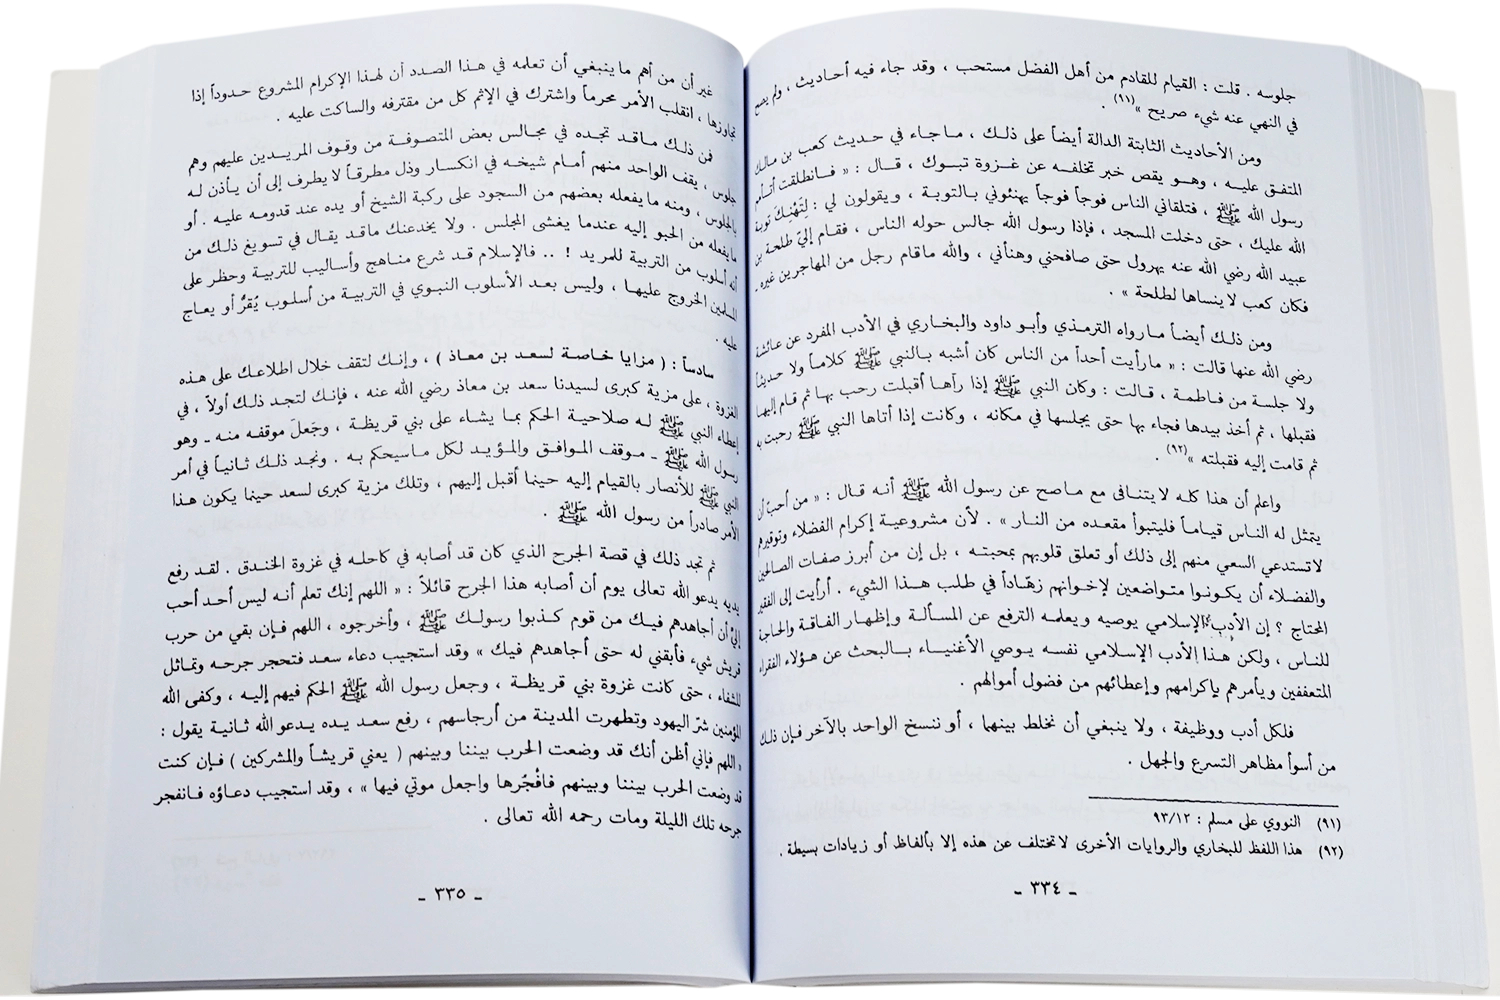 جلوسه . قلت : القيام للقادم من أهل الفضل مستحب ، وقد جاء فيه أحاديث ، ولم يصح
في النهي عنه شيء صريح »(٩١) .
ومن الأحاديث الثابتة الدالة أيضاً على ذلك ، ماجاء في حديث كعب بن مالك
المتفق عليه ، وهو يقص خبر تخلفه عن غزوة تبوك ، قال : « فانطلقت أتأمم
رسول الله ﷺ ، فتلقاني الناس فوجاً فوجاً يهنئوني بالتوبة ، ويقولون لي : لِتَهْنِكَ توبة
الله عليك ، حتى دخلت المسجد ، فإذا رسول الله جالس حوله الناس ، فقام إليّ طلحة بن
عبيد الله رضي الله عنه يهرول حتى صافحني وهنأني ، والله ماقام رجل من المهاجرين غيره .
فكان كعب لا ينساها لطلحة » .
ومن ذلك أيضاً مارواه الترمذي وأبو داود والبخاري في الأدب المفرد عن عائشة
رضي الله عنها قالت : « مارأيت أحداً من الناس كان أشبه بالنبي ﷺ كلاماً ولا حديثاً
ولا جلسة من فاطمة ، قالت : وكان النبي ﷺ إذا رآها أقبلت رحب بها ثم قام إليها
فقبلها ، ثم أخذ بيدها فجاء بها حتى يجلسها في مكانه ، وكانت إذا أتاها النبي ﷺ رحبت به
ثم قامت إليه فقبلته »(٩٢) .
واعلم أن هذا كله لا يتنافى مع ماصح عن رسول الله ﷺ أنه قال : « من أحبّ أن
يتمثل له الناس قياماً فليتبوأ مقعده من النار » . لأن مشروعية إكرام الفضلاء وتوقيرهم
لاتستدعي السعي منهم إلى ذلك أو تعلق قلوبهم بمحبته ، بل إن من أبرز صفات الصالحين
والفضلاء أن يكونوا متواضعين لإخوانهم زهّاداً في طلب هذا الشيء . أرأيت إلى الفقير
المحتاج ؟ إن الأدب الإسلامي يوصيه ويعلمه الترفع عن المسألة وإظهار الفاقة والحاجة
للناس ، ولكن هذا الأدب الإسلامي نفسه يوصي الأغنياء بالبحث عن هؤلاء الفقراء
المتعففين ويأمرهم بإكرامهم وإعطائهم من فضول أموالهم .
فلكل أدب ووظيفة ، ولا ينبغي أن نخلط بينهما ، أو ننسخ الواحد بالآخر فإن ذلك
من أسوأ مظاهر التسرع والجهل .
(٩١) النووي على مسلم : ٩٣/١٢
(٩٢) هذا اللفظ للبخاري والروايات الأخرى لاتختلف عن هذه إلا بألفاظ أو زيادات بسيطة .
ـ ٣٣٤ ـ
غير أن من أهم ماينبغي أن تعلمه في هذا الصدد أن لهذا الإكرام المشروع حدوداً إذا
تجاوزها ، انقلب الأمر محرماً واشترك في الإثم كل من مقترفه والساكت عليه .
فمن ذلك ماقد تجده في مجالس بعض المتصوفة من وقوف المريدين عليهم وهم
جلوس ، يقف الواحد منهم أمام شيخه في انكسار وذل مطرقاً لا يطرف إلى أن يأذن له
بالجلوس ، ومنه مايفعله بعضهم من السجود على ركبة الشيخ أو يده عند قدومه عليه . أو
مايفعله من الحبو إليه عندما يغشى المجلس . ولا يخدعنك ماقد يقال في تسويغ ذلك من
أنه أسلوب من التربية للمريد ! .. فالإسلام قد شرع مناهج وأساليب للتربية وحظر على
المسلمين الخروج عليها ، وليس بعد الأسلوب النبوي في التربية من أسلوب يُقرُّ أو يعاج
عليه .
سادساً : ( مزايا خاصة لسعد بن معاذ ) ، وإنك لتقف خلال اطلاعك على هذه
الغزوة ، على مزية كبرى لسيدنا سعد بن معاذ رضي الله عنه ، فإنك لتجد ذلك أولاً ، في
إعطاء النبي ﷺ له صلاحية الحكم بما يشاء على بني قريظة ، وجَعلَ موقفه منه ـ وهو
رسول الله ﷺ ـ موقف الموافق والمؤيد لكل ماسيحكم به . ونجد ذلك ثانياً في أمر
النبي ﷺ للأنصار بالقيام إليه حينما أقبل إليهم ، وتلك مزية كبرى لسعد حينما يكون هذا
الأمر صادراً من رسول الله ﷺ .
ثم تجد ذلك في قصة الجرح الذي كان قد أصابه في كاحله في غزوة الخندق . لقد رفع
يديه يدعو الله تعالى يوم أن أصابه هذا الجرح قائلاً : « اللهم إنك تعلم أنه ليس أحد أحب
إليّ أن أجاهدهم فيك من قوم كذبوا رسولك ﷺ ، وأخرجوه ، اللهم فإن بقي من حرب
قريش شيء فأبقني له حتى أجاهدهم فيك » وقد استجيب دعاء سعد فتحجر جرحه وتماثل
للشفاء ، حتى كانت غزوة بني قريظة ، وجعل رسول الله ﷺ الحكم فيهم إليه ، وكفى الله
المؤمنين شرّ اليهود وتطهرت المدينة من أرجاسهم ، رفع سعد يده يدعو الله ثانية يقول :
« اللهم فإني أظن أنك قد وضعت الحرب بيننا وبينهم ( يعني قريشاً والمشركين ) فإن كنت
قد وضعت الحرب بيننا وبينهم فافْجُرها واجعل موتي فيها » ، وقد استجيب دعاؤه فانفجر
جرحه تلك الليلة ومات رحمه الله تعالى .
ـ ٣٣٥ ـ